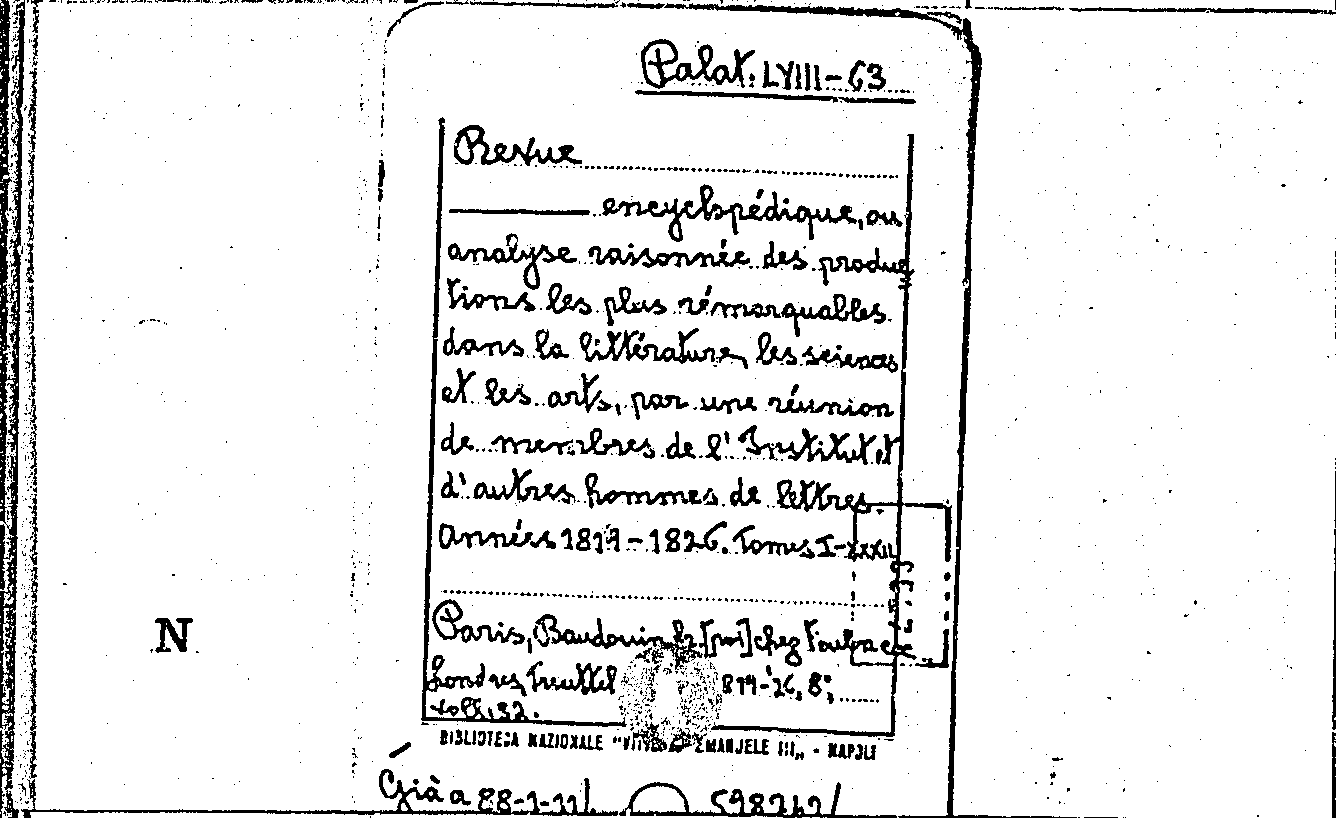 Palat. LVIII-63
Revue
encyclopédique, ou
analyse raisonnée des produc
tions les plus rémarquables
dans la littérature, les sciences
et les arts, par une réunion
de membres de l'Institut et
d'autres hommes de lettres.
Années 1819-1826. Tomes I-XXXII
Paris, Baudouin fr. [poi] chez Foulon e
Londres, Treuttel 819-26, 8°,
voll. 32.
BIBLIOTECA NAZIONALE "VITTORIO EMANUELE III„ - NAPOLI
N
Già a 88-1-11/ 598262/